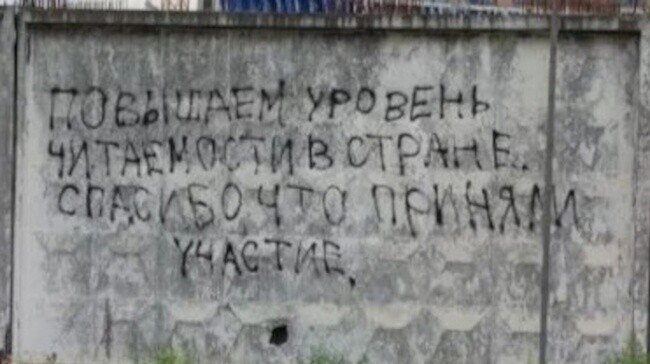 ПОВЫШАЕМ УРОВЕНЬ
ЧИТАЕМОСТИ В СТРАНЕ..
СПАСИБО ЧТО ПРИНЯЛИ
УЧАСТИЕ.